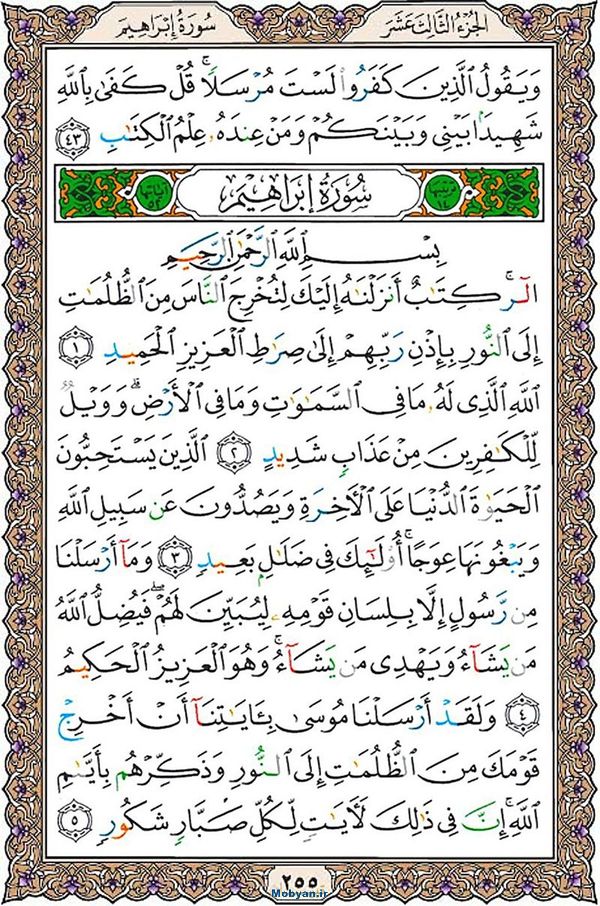 الجزء الثالث عشر
سورة إبراهيم
وَيَقُولُ ٱلَّذِينَ كَفَرُوا۟ لَسْتَ مُرْسَلًا ۚ قُلْ كَفَىٰ بِٱللَّهِ
شَهِيدًۢا بَيْنِى وَبَيْنَكُمْ وَمَنْ عِندَهُۥ عِلْمُ ٱلْكِتَـٰبِ ٤٣
سورة إبراهيم
بِسْمِ ٱللَّهِ ٱلرَّحْمَـٰنِ ٱلرَّحِيمِ
الٓر ۚ كِتَـٰبٌ أَنزَلْنَـٰهُ إِلَيْكَ لِتُخْرِجَ ٱلنَّاسَ مِنَ ٱلظُّلُمَـٰتِ
إِلَى ٱلنُّورِ بِإِذْنِ رَبِّهِمْ إِلَىٰ صِرَٰطِ ٱلْعَزِيزِ ٱلْحَمِيدِ ١
ٱللَّهِ ٱلَّذِى لَهُۥ مَا فِى ٱلسَّمَـٰوَٰتِ وَمَا فِى ٱلْأَرْضِ ۗ وَوَيْلٌ
لِّلْكَـٰفِرِينَ مِنْ عَذَابٍ شَدِيدٍ ٢ ٱلَّذِينَ يَسْتَحِبُّونَ
ٱلْحَيَوٰةَ ٱلدُّنْيَا عَلَى ٱلْـَٔاخِرَةِ وَيَصُدُّونَ عَن سَبِيلِ ٱللَّهِ
وَيَبْغُونَهَا عِوَجًا ۚ أُو۟لَـٰٓئِكَ فِى ضَلَـٰلٍۭ بَعِيدٍ ٣ وَمَآ أَرْسَلْنَا
مِن رَّسُولٍ إِلَّا بِلِسَانِ قَوْمِهِۦ لِيُبَيِّنَ لَهُمْ ۖ فَيُضِلُّ ٱللَّهُ
مَن يَشَآءُ وَيَهْدِى مَن يَشَآءُ ۚ وَهُوَ ٱلْعَزِيزُ ٱلْحَكِيمُ
٤ وَلَقَدْ أَرْسَلْنَا مُوسَىٰ بِـَٔايَـٰتِنَآ أَنْ أَخْرِجْ
قَوْمَكَ مِنَ ٱلظُّلُمَـٰتِ إِلَى ٱلنُّورِ وَذَكِّرْهُم بِأَيَّىٰمِ
ٱللَّهِ ۚ إِنَّ فِى ذَٰلِكَ لَـَٔايَـٰتٍ لِّكُلِّ صَبَّارٍ شَكُورٍ ٥
٢٥٥
Mobyan.ir